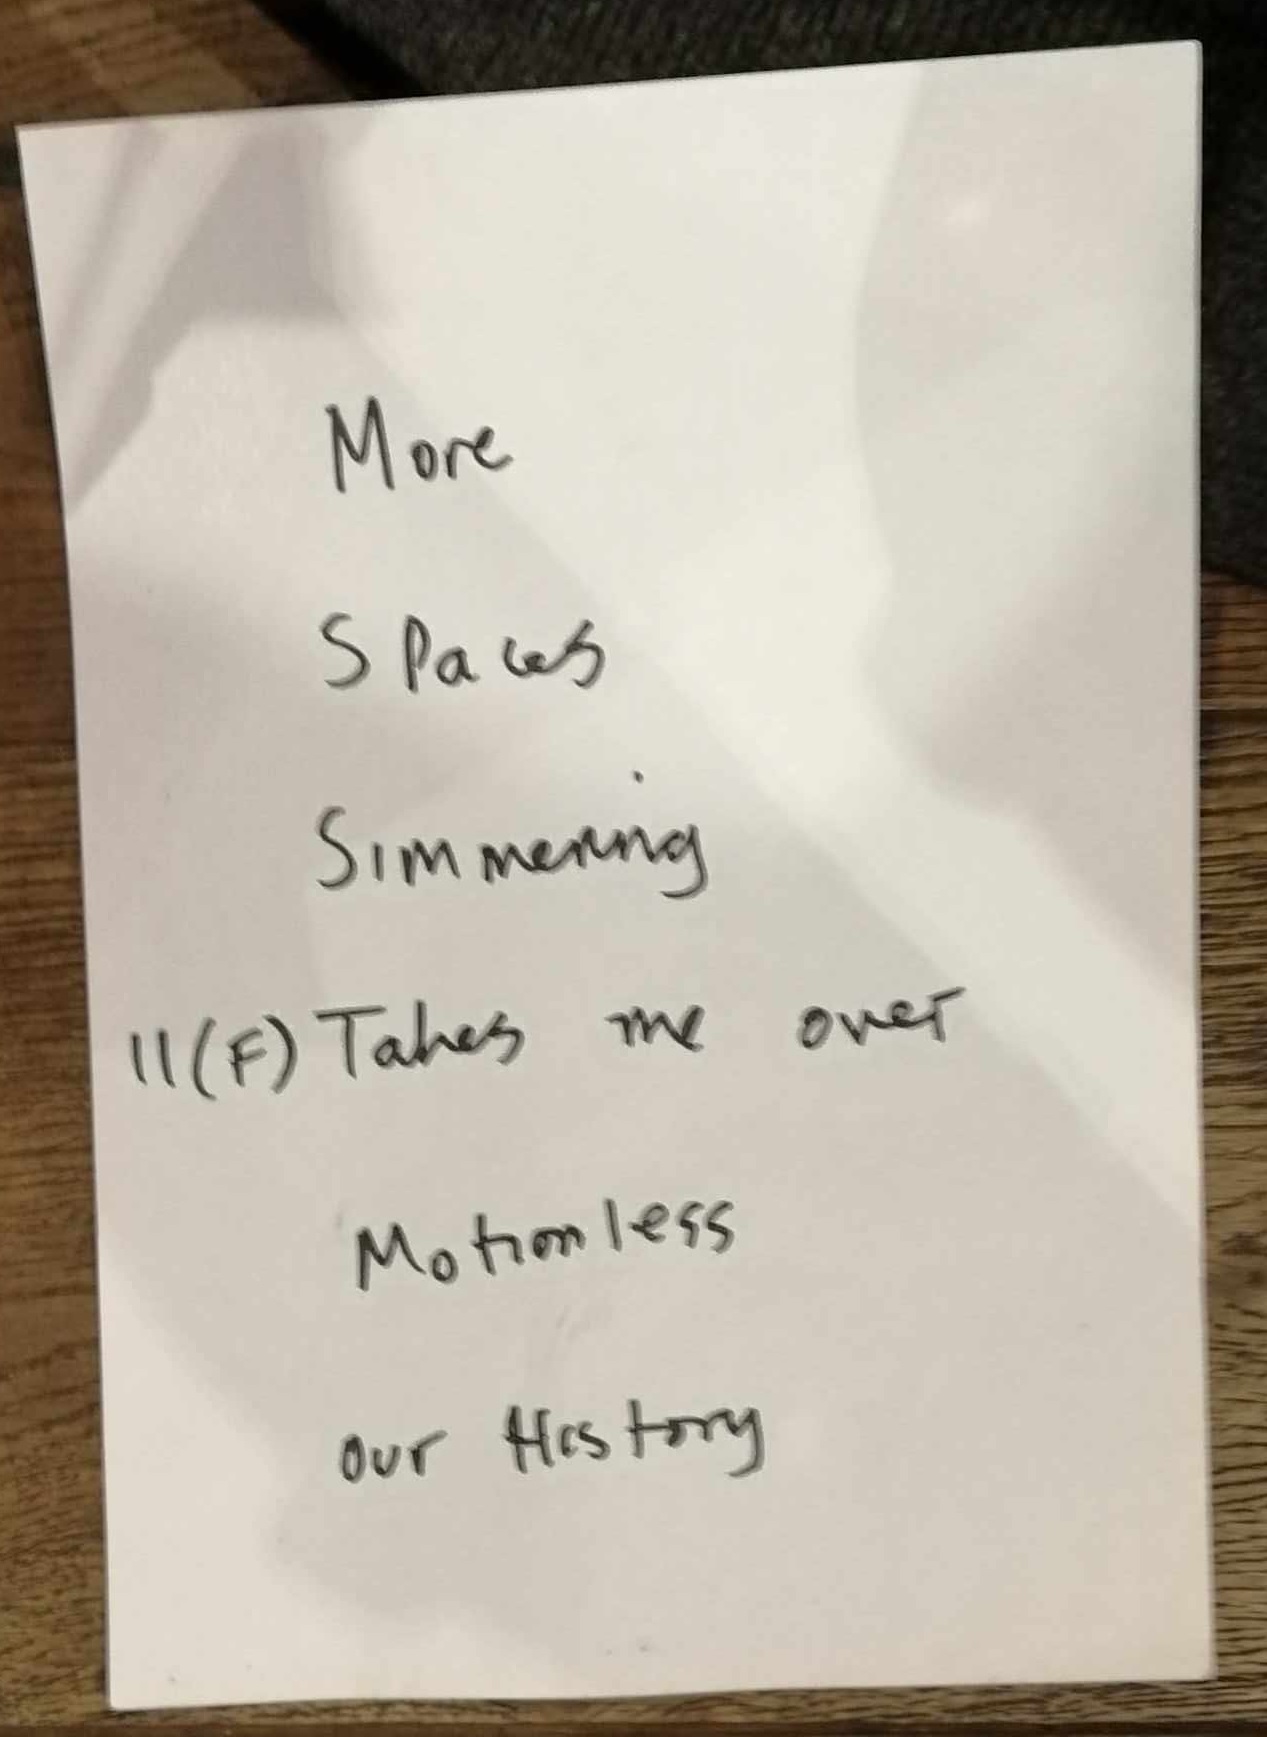 More
Spaces
Simmering
11(F) Takes me over
Motionless
our History